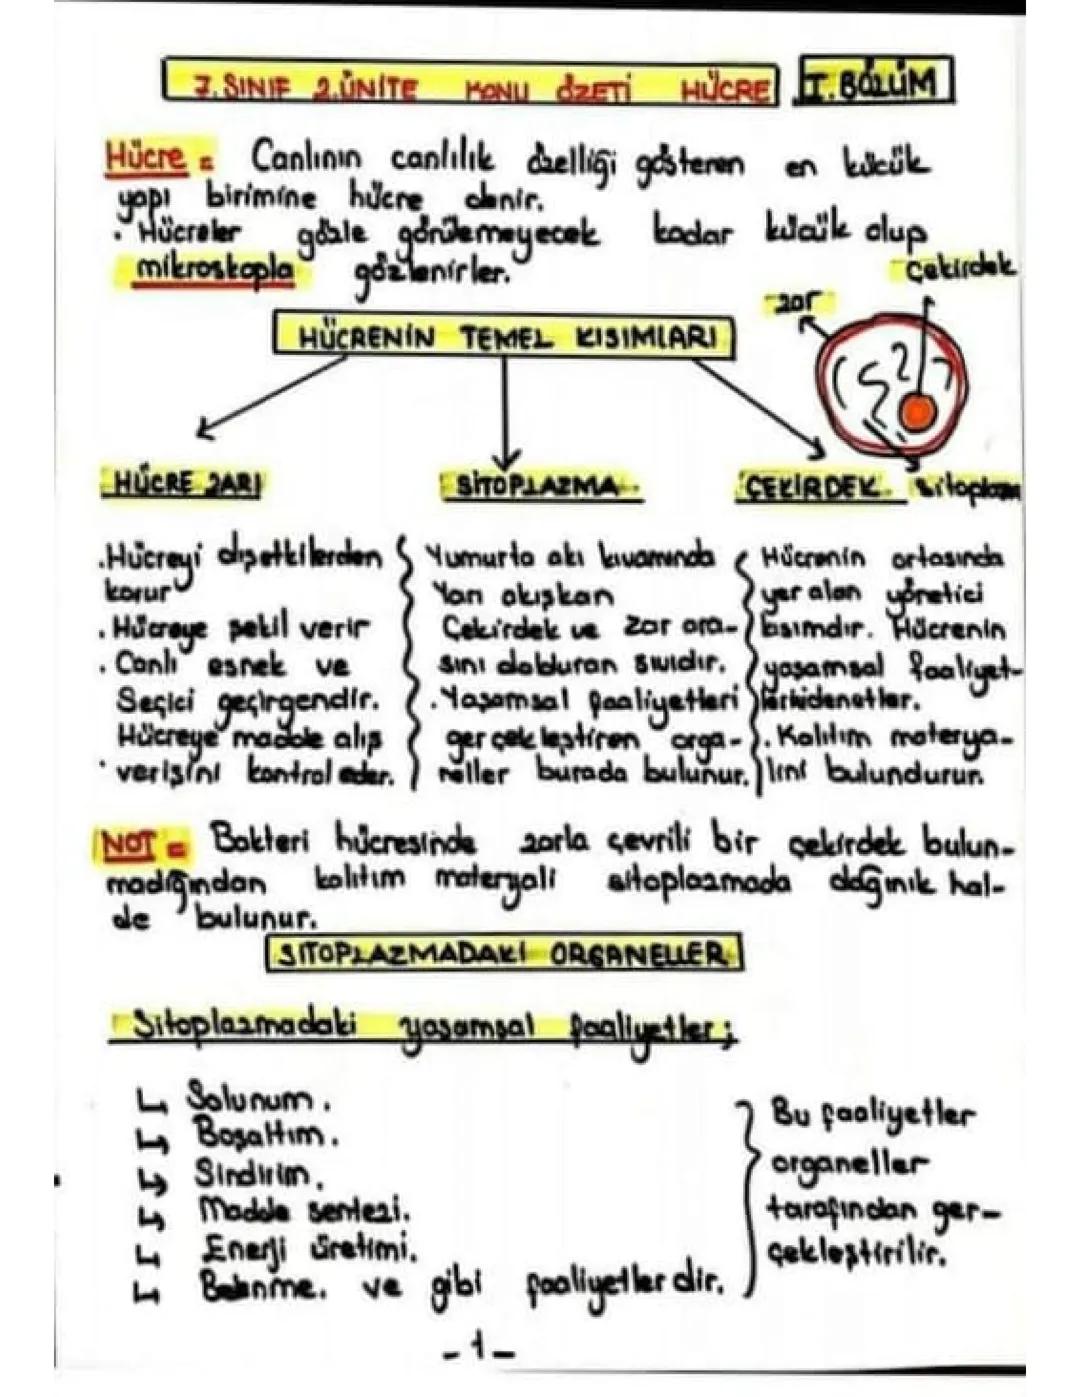 7. SINIF 2.ÜNİTE KONU ÖZETİ HÜCRE I. BÖLÜM
Hücre = Canlının canlılık özelliği gösteren en küçük
yapı birimine hücre denir.
. Hücreler gözle görülemeyecek kadar küçük olup
mikroskopla gözlenirler.
Çekirdek
zar
HÜCRENİN TEMEL KISIMLARI
HÜCRE ZARI
SİTOPLAZMA.
ÇEKİRDEK.
Sitoplazm
.Hücreyi dış etkilerden
korur
. Hücreye şekil verir
. Canlı esnek ve
Seçici geçirgendir.
Hücreye madde alış
. verişini kontrol eder.
Yumurta akı kıvamında
Yarı akışkan
Çekirdek ve zar ara-
sını dolduran sıvıdır.
. Yaşamsal faaliyetleri
gerçekleştiren orga-
neller burada bulunur.
Hücrenin ortasında
yer alan yönetici
kısımdır. Hücrenin
yaşamsal faaliyet-
. Kalıtım materya-
lini bulundurur.
NOT = Bakteri hücresinde zarla çevrili bir çekirdek bulun-
madığından kalıtım materyali sitoplazmada dağınık hal-
de bulunur.
SİTOPLAZMADAKİ ORGANELLER
Sitoplazmadaki yaşamsal faaliyetler;
Solunum.
Boşaltım.
Sindirim.
Madde sentezi.
Enerji üretimi.
Beslenme. ve gibi faaliyetlerdir.
Bu faaliyetler
organeller
tarafından ger-
çekleştirilir.
-1-